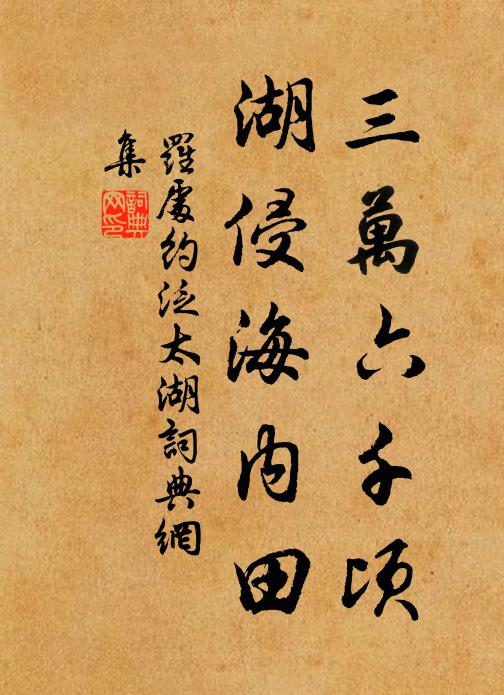 三萬六千頃
湖侵海内田
羅處約泛太湖詞典網
集
詞典
网印